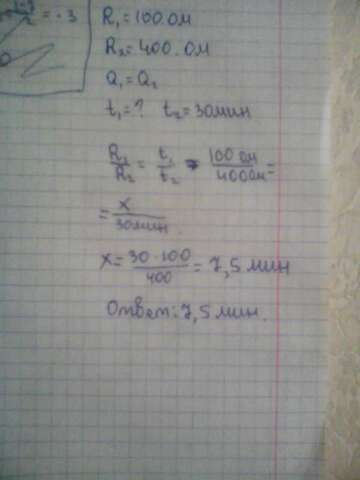 = -3
R₁=100.Ом
R₂=400.ОМ
Q₁=Q₂
t₁=? t₂=30мин
R₁/R₂ = t₁/t₂ → 100 Ом/400Ом =
= x/30мин.
x= 30·100/400 = 7,5 мин
Ответ: 7,5 мин.